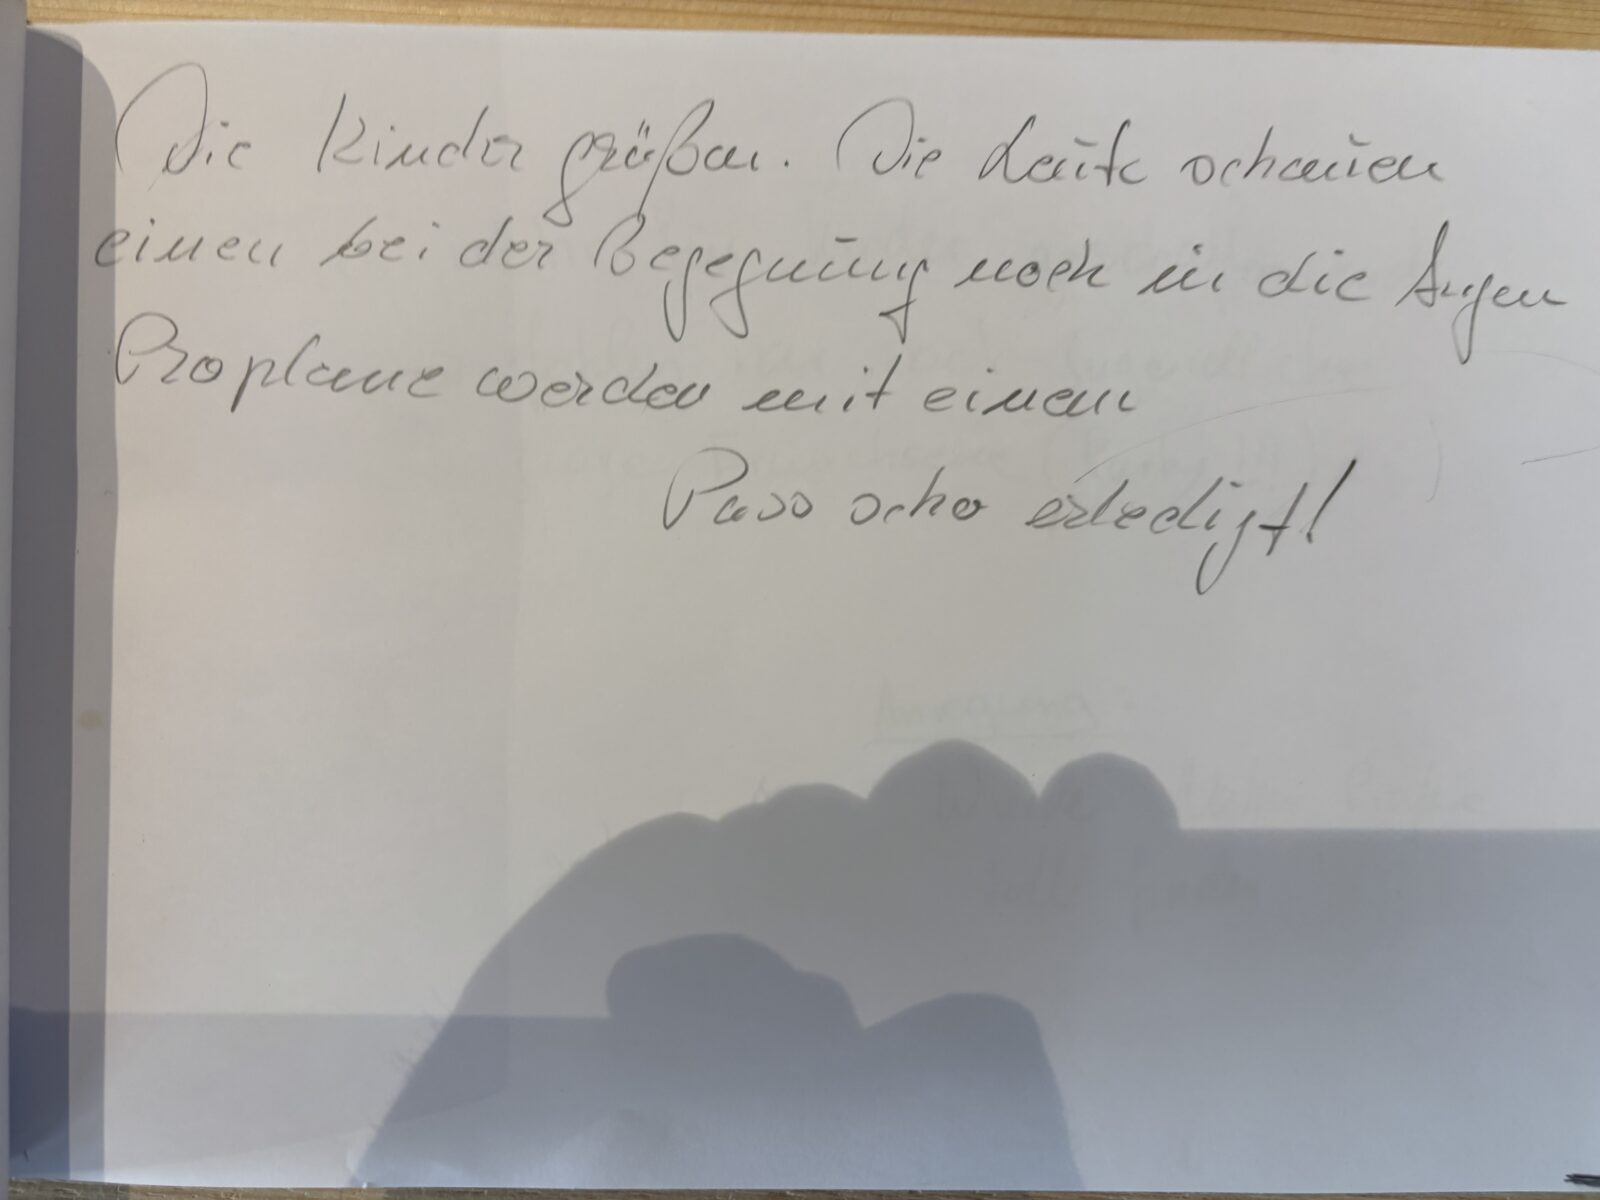 Die Kinder grüßen. Die Leute schauen
einen bei der Begegnung noch in die Augen
Proplame werden mit einem
Pass scho erledigt!